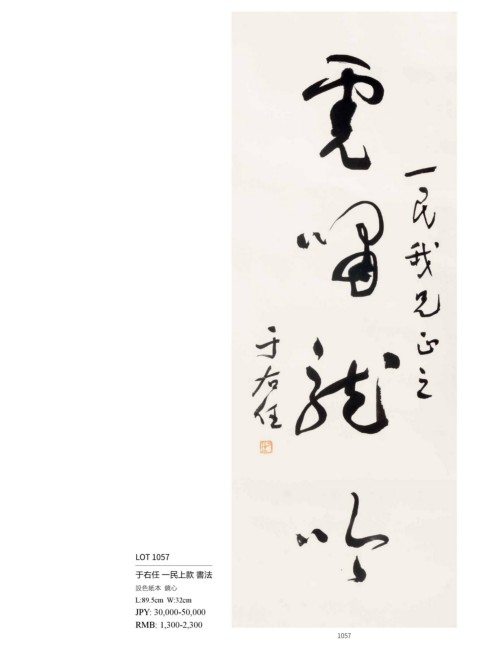 虎嘯龍吟
一民我兄正之
于右任
LOT 1057
于右任 一民上款 書法
設色紙本 鏡心
L:89.5cm W:32cm
JPY: 30,000-50,000
RMB: 1,300-2,300
1057